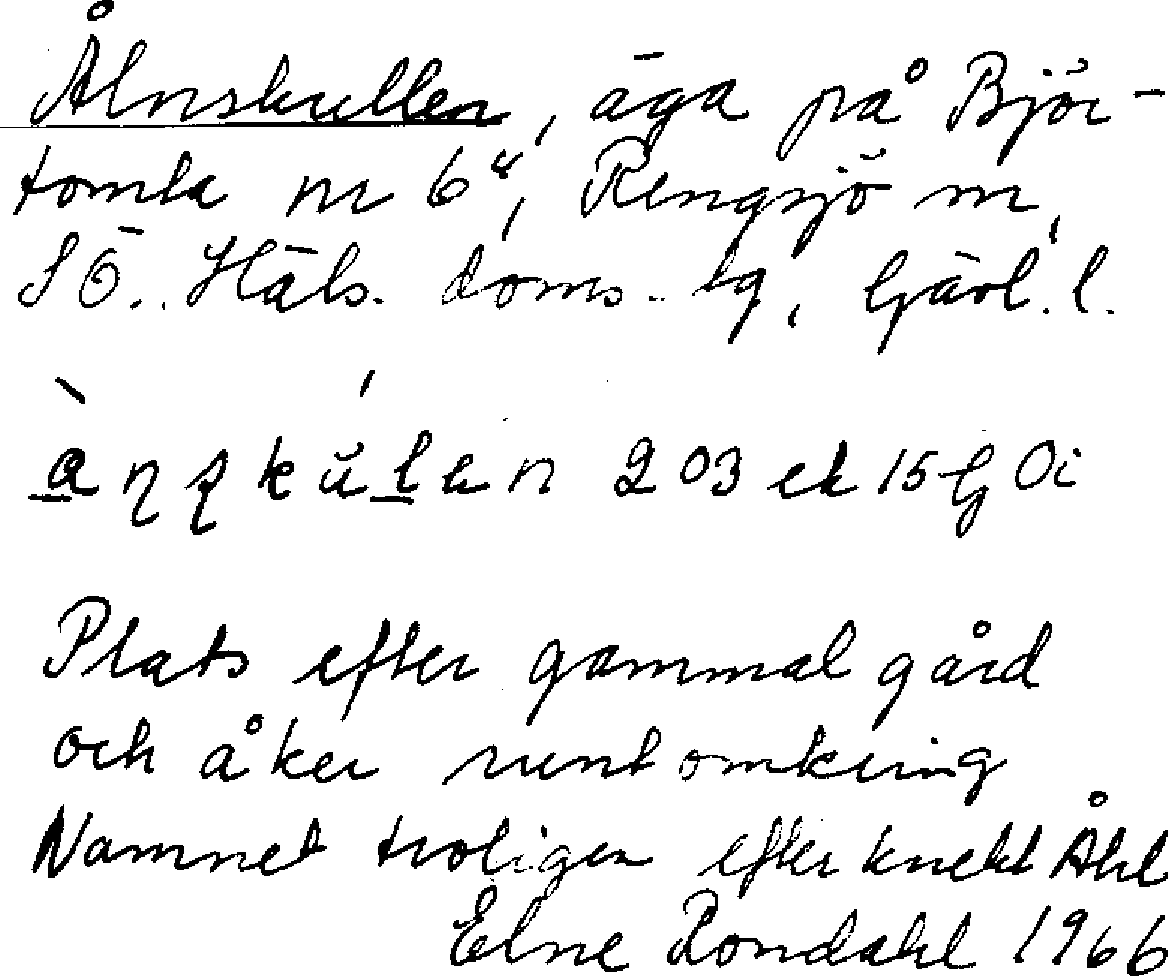 Ålnskullen, äga på Björ-
tomta nr 6⁴, Rengsjö sn,
SÖ. Häls. doms. tg, Gävl. l.
203 ek 15 G Oi
Plats efter gammal gård
och åker runt omkring
Namnet troligen efter knekt Åhl
Elne Rondahl 1966